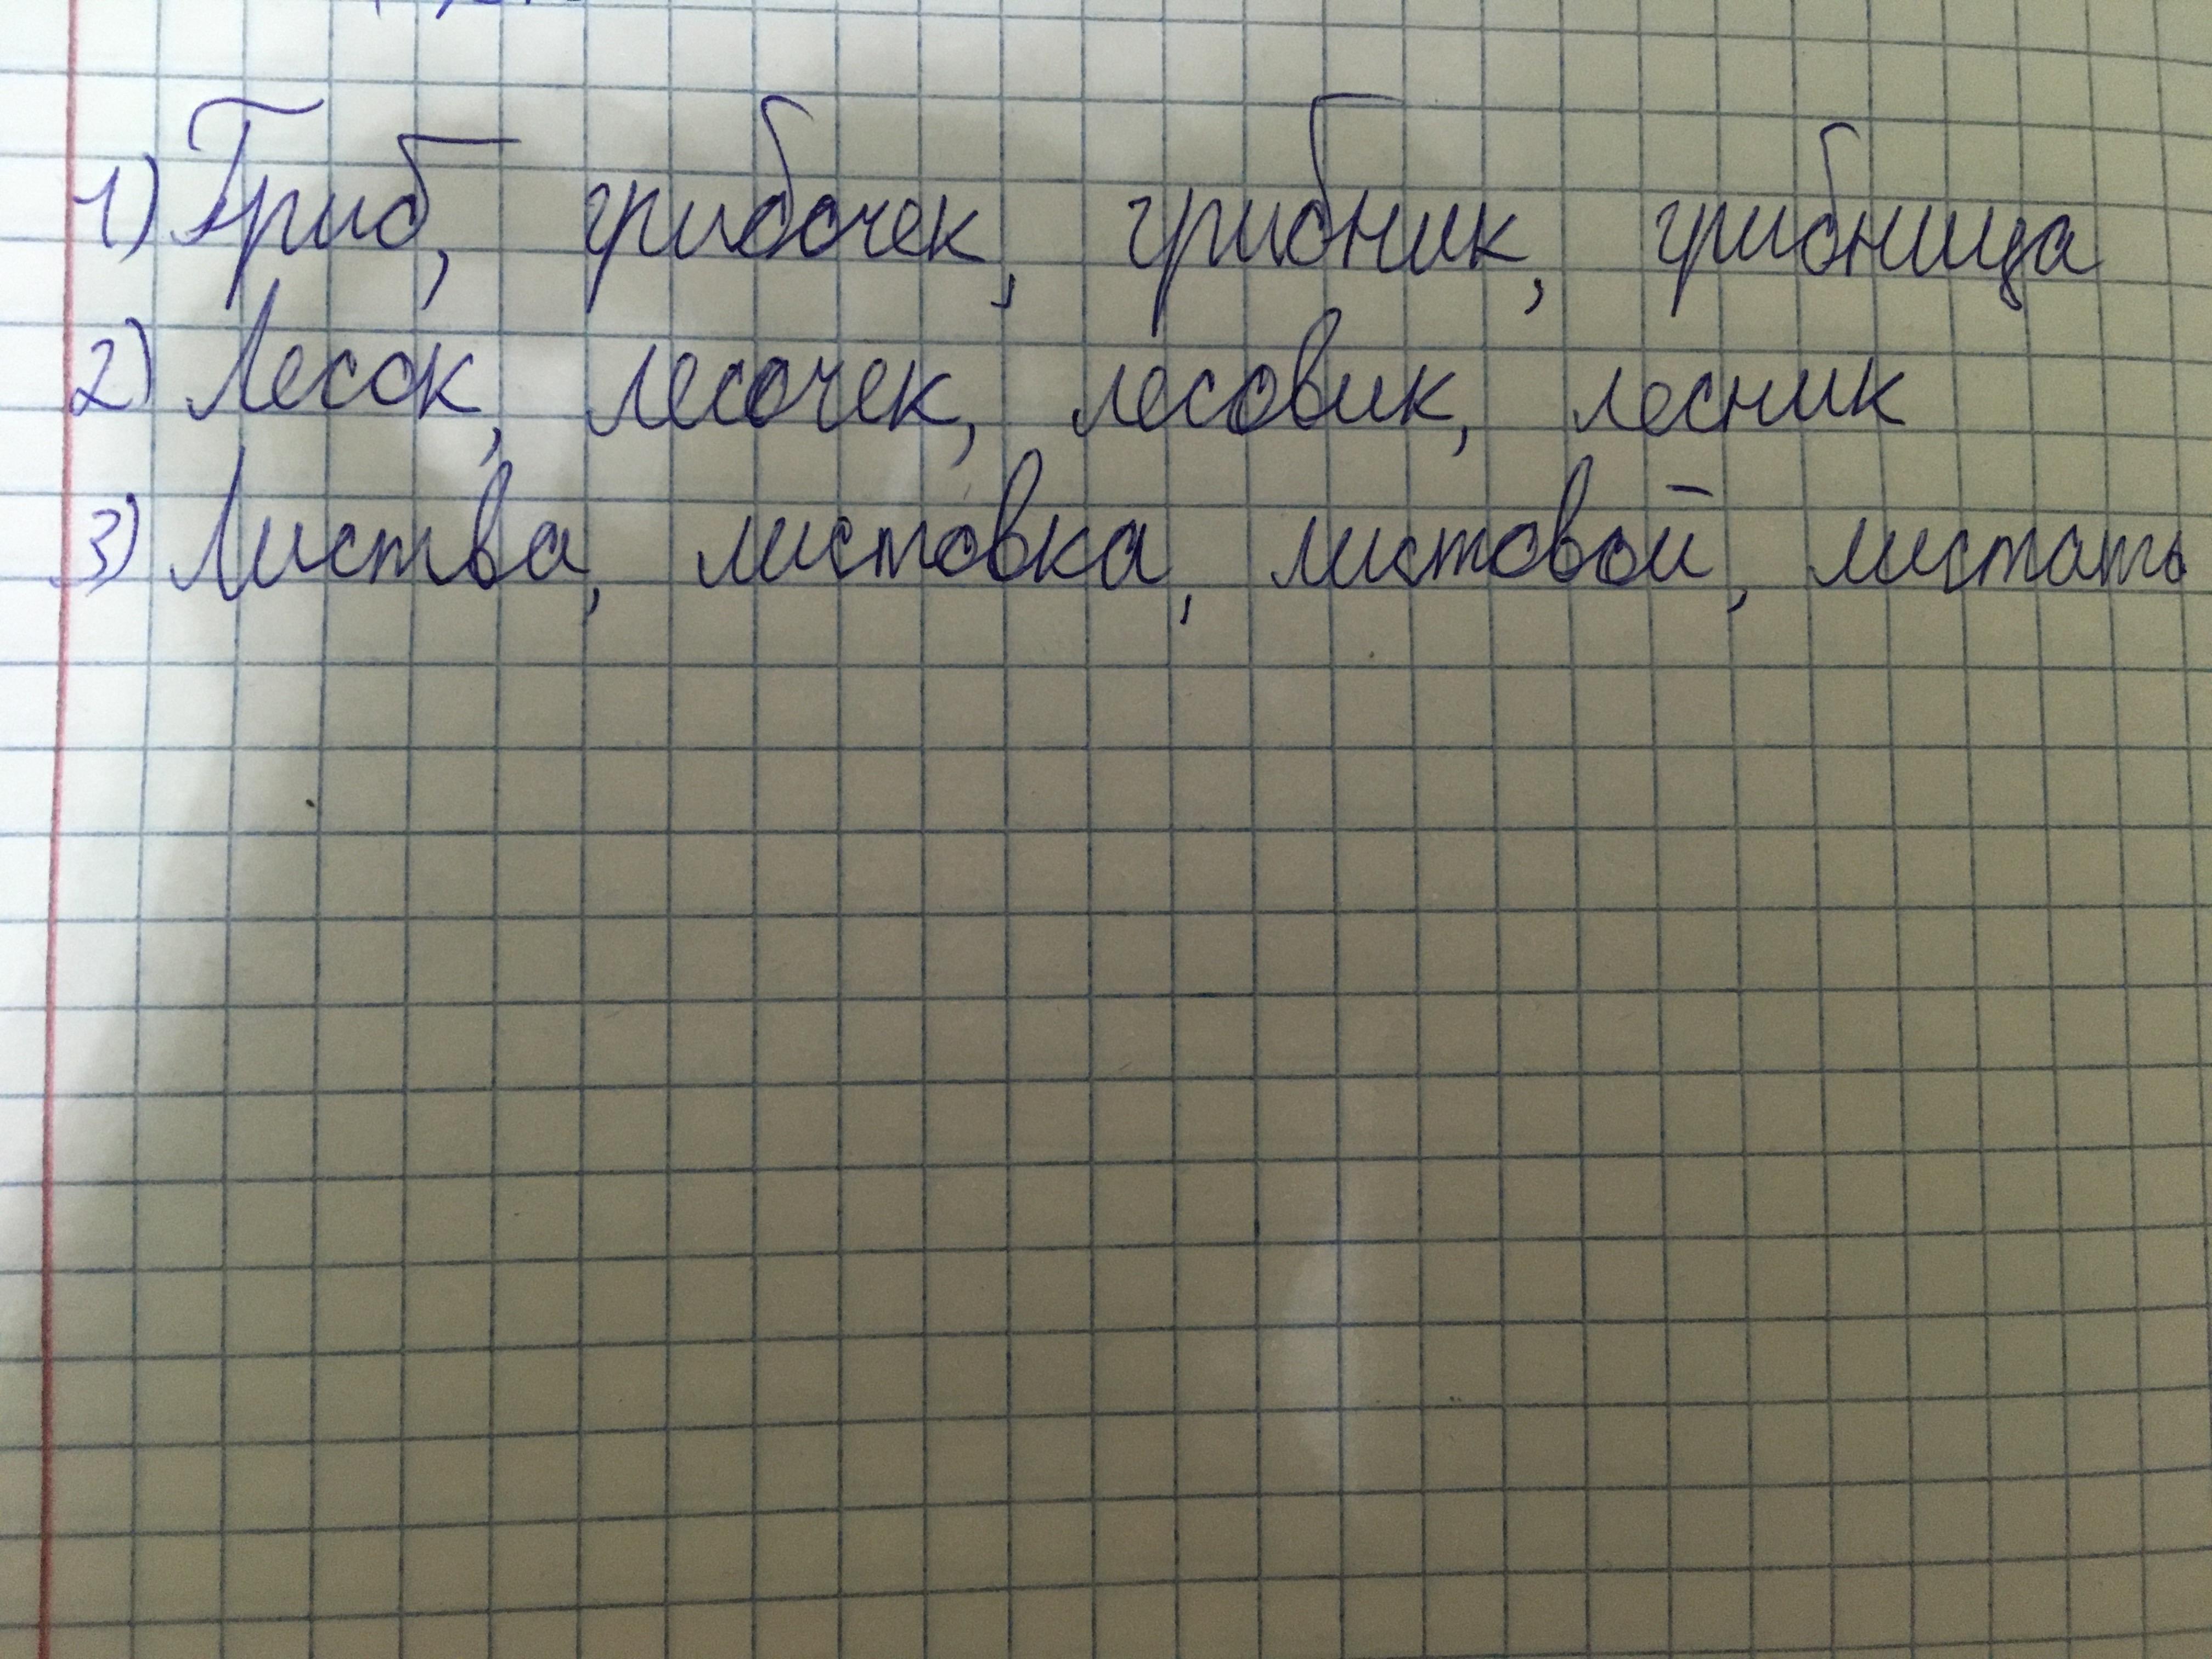 1) Гриб, грибочек, грибник, грибница
2) Лесок, лесочек, лесовик, лесник
3) Листва, листовка, листовой, листать